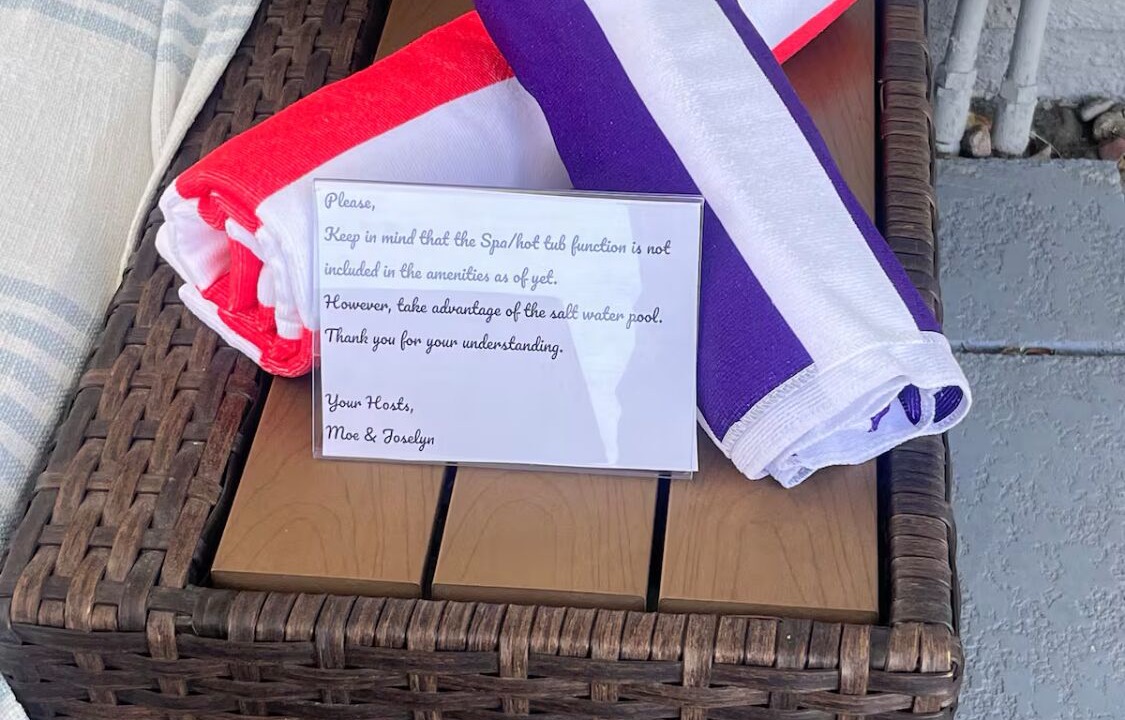 Please,
Keep in mind that the Spa/hot tub function is not
included in the amenities as of yet.
However, take advantage of the salt water pool.
Thank you for your understanding.
Your Hosts,
Moe & Joselyn